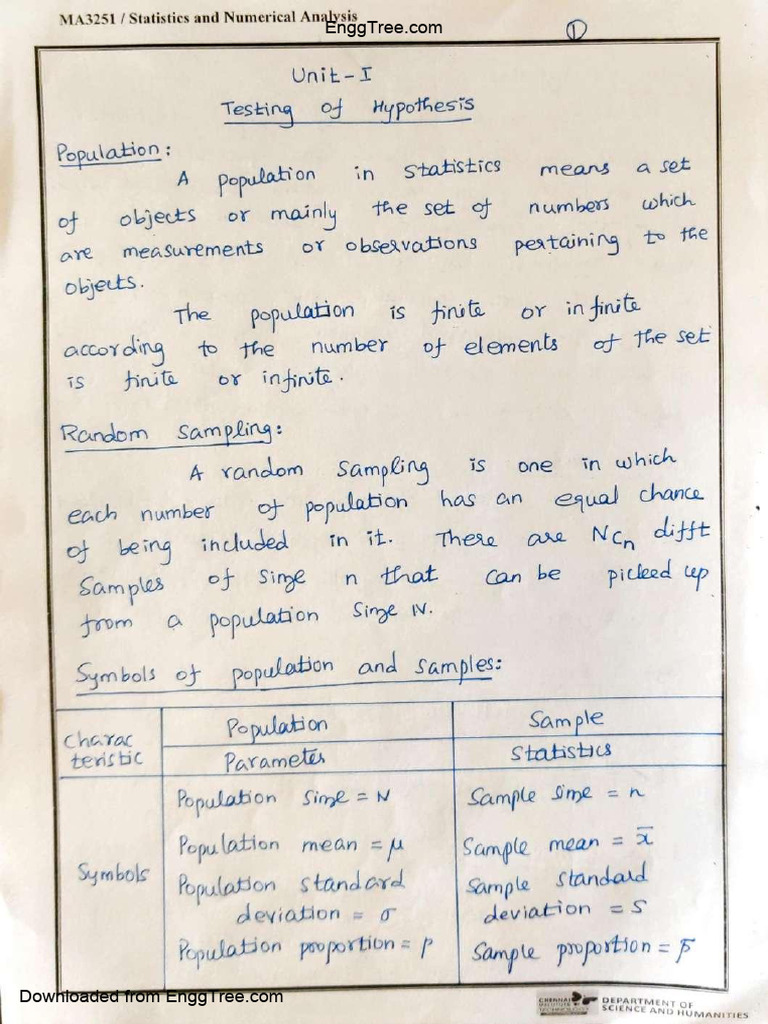 MA3251 / Statistics and Numerical Analysis
EnggTree.com
1
Unit-I
Testing of Hypothesis
Population:
A population in statistics means a set
of objects or mainly the set of numbers which
are measurements or observations pertaining to the
objects.
The population is finite or infinite
according to the number of elements of the set
is finite or infinite.
Random Sampling:
A random sampling is one in which
each number of population has an equal chance
of being included in it. There are NCn difft
Samples of size n that can be picked up
from a population size N.
Symbols of population and samples:
Charac
teristic
Population
Sample
Parameter
Statistics
Symbols
Population size = N
Sample size = n
Population mean = μ
Sample mean = x̄
Population standard
deviation = σ
Sample standard
deviation = S
Population proportion = P
Sample proportion = p̄
Downloaded from EnggTree.com
CHENNAI
INSTITUTE
TECHNOLOGY
DEPARTMENT OF
SCIENCE AND HUMANITIES